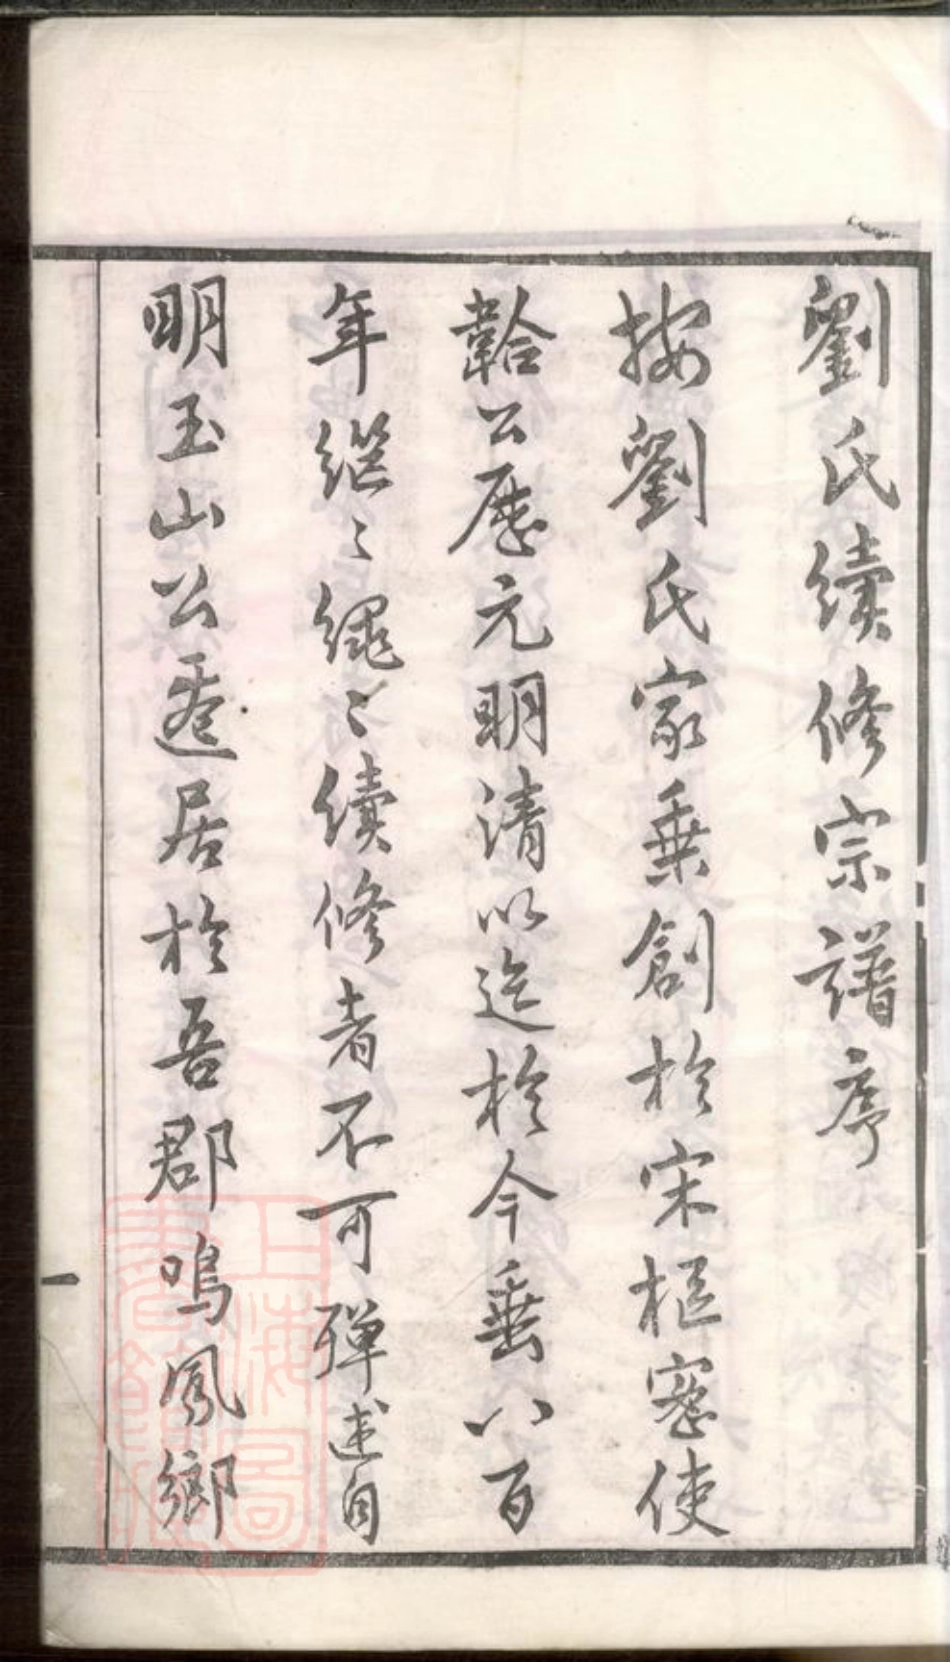 劉氏續修宗譜序
按劉氏家乗創於宋樞密使
韐公歷元明清以迄於今垂八百
年繼〻繩〻續修者不可殫述自
明玉山公遷居於吾郡鳴鳳鄉
一
上海圖書館藏